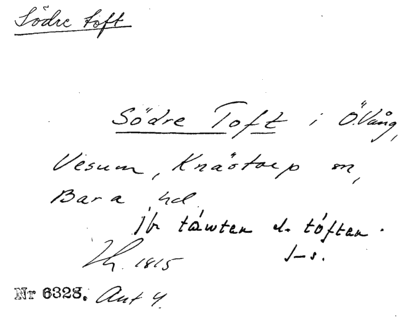 Södre toft
Södre Toft i Ö. Vång,
Vesum, Knästorp sn,
Bara hd.
jfr táwten el. tóften.
1815
Nr 6328. Ant 4.